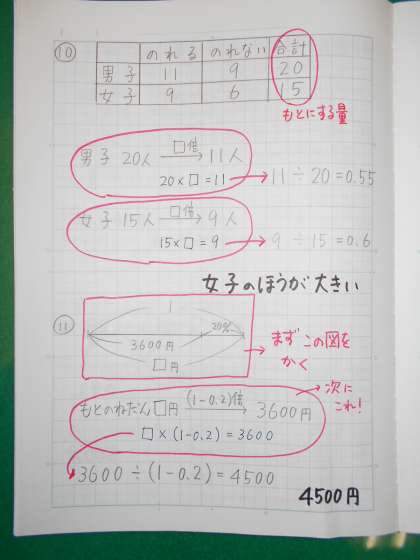 ⑩
のれる のれない 合計
男子 11 9 20
女子 9 6 15
もとにする量
男子 20人 □倍→ 11人
20×□=11 → 11÷20=0.55
女子 15人 □倍→ 9人
15×□=9 → 9÷15=0.6
女子のほうが大きい
⑪
1
20%
3600円
□円
まずこの図を
かく
次に
これ!
もとのねだん□円 (1-0.2)倍→ 3600円
□×(1-0.2)=3600
3600÷(1-0.2)=4500
4500円